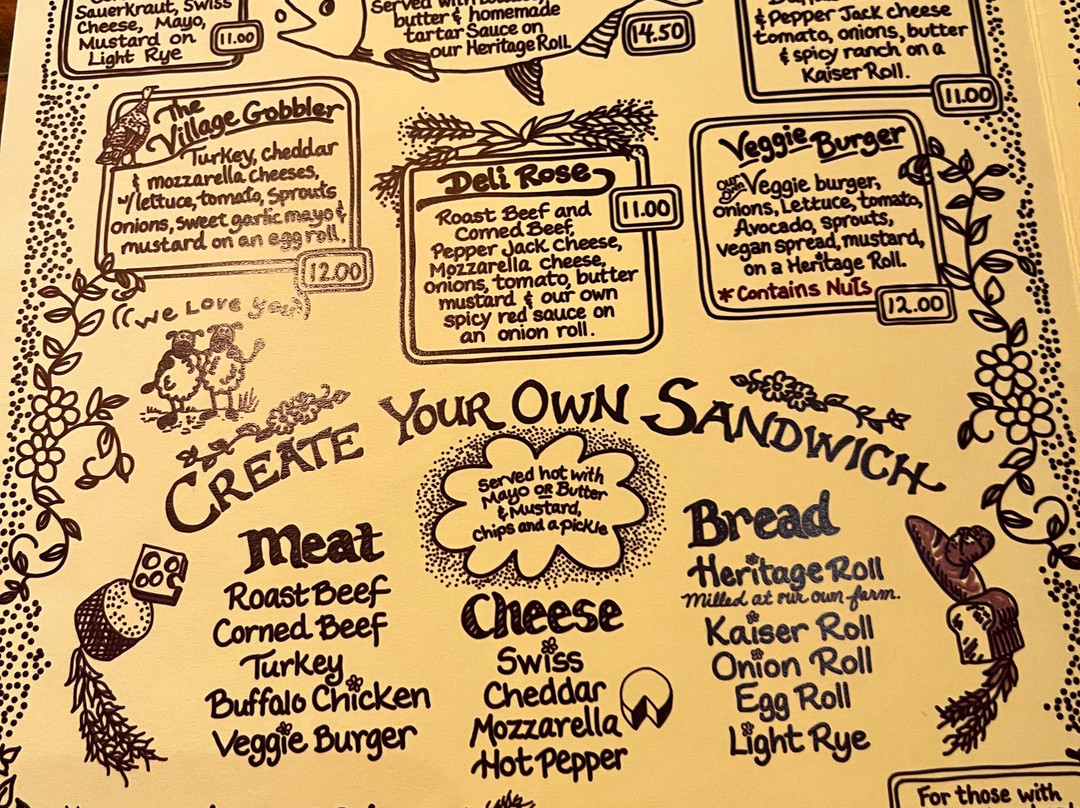 Sauerkraut, Swiss
Cheese, Mayo,
Mustard on
Light Rye
11.00
butter & homemade
tartar Sauce on
our Heritage Roll.
14.50
& Pepper Jack cheese
tomato, onions, butter
& spicy ranch on a
Kaiser Roll.
11.00
The
Village Gobbler
Turkey, cheddar
& mozzarella cheeses,
w/lettuce, tomato, Sprouts
onions, sweet garlic mayo &
mustard on an egg roll.
12.00
((We Love you))
Deli Rose
11.00
Roast Beef and
Corned Beef,
Pepper Jack Cheese,
Mozzarella Cheese,
onions, tomato, butter
mustard & our own
spicy red sauce on
an onion roll.
Veggie Burger
our own Veggie burger,
onions, Lettuce, tomato,
Avocado, sprouts,
vegan spread, mustard,
on a Heritage Roll.
*Contains Nuts
12.00
CREATE YOUR OWN SANDWICH
Served hot with
Mayo OR Butter
& Mustard,
chips and a pickle
Meat
Roast Beef
Corned Beef
Turkey
Buffalo Chicken
Veggie Burger
Cheese
Swiss
Cheddar
Mozzarella
Hot Pepper
Bread
Heritage Roll
Milled at our own farm.
Kaiser Roll
Onion Roll
Egg Roll
Light Rye
For those with